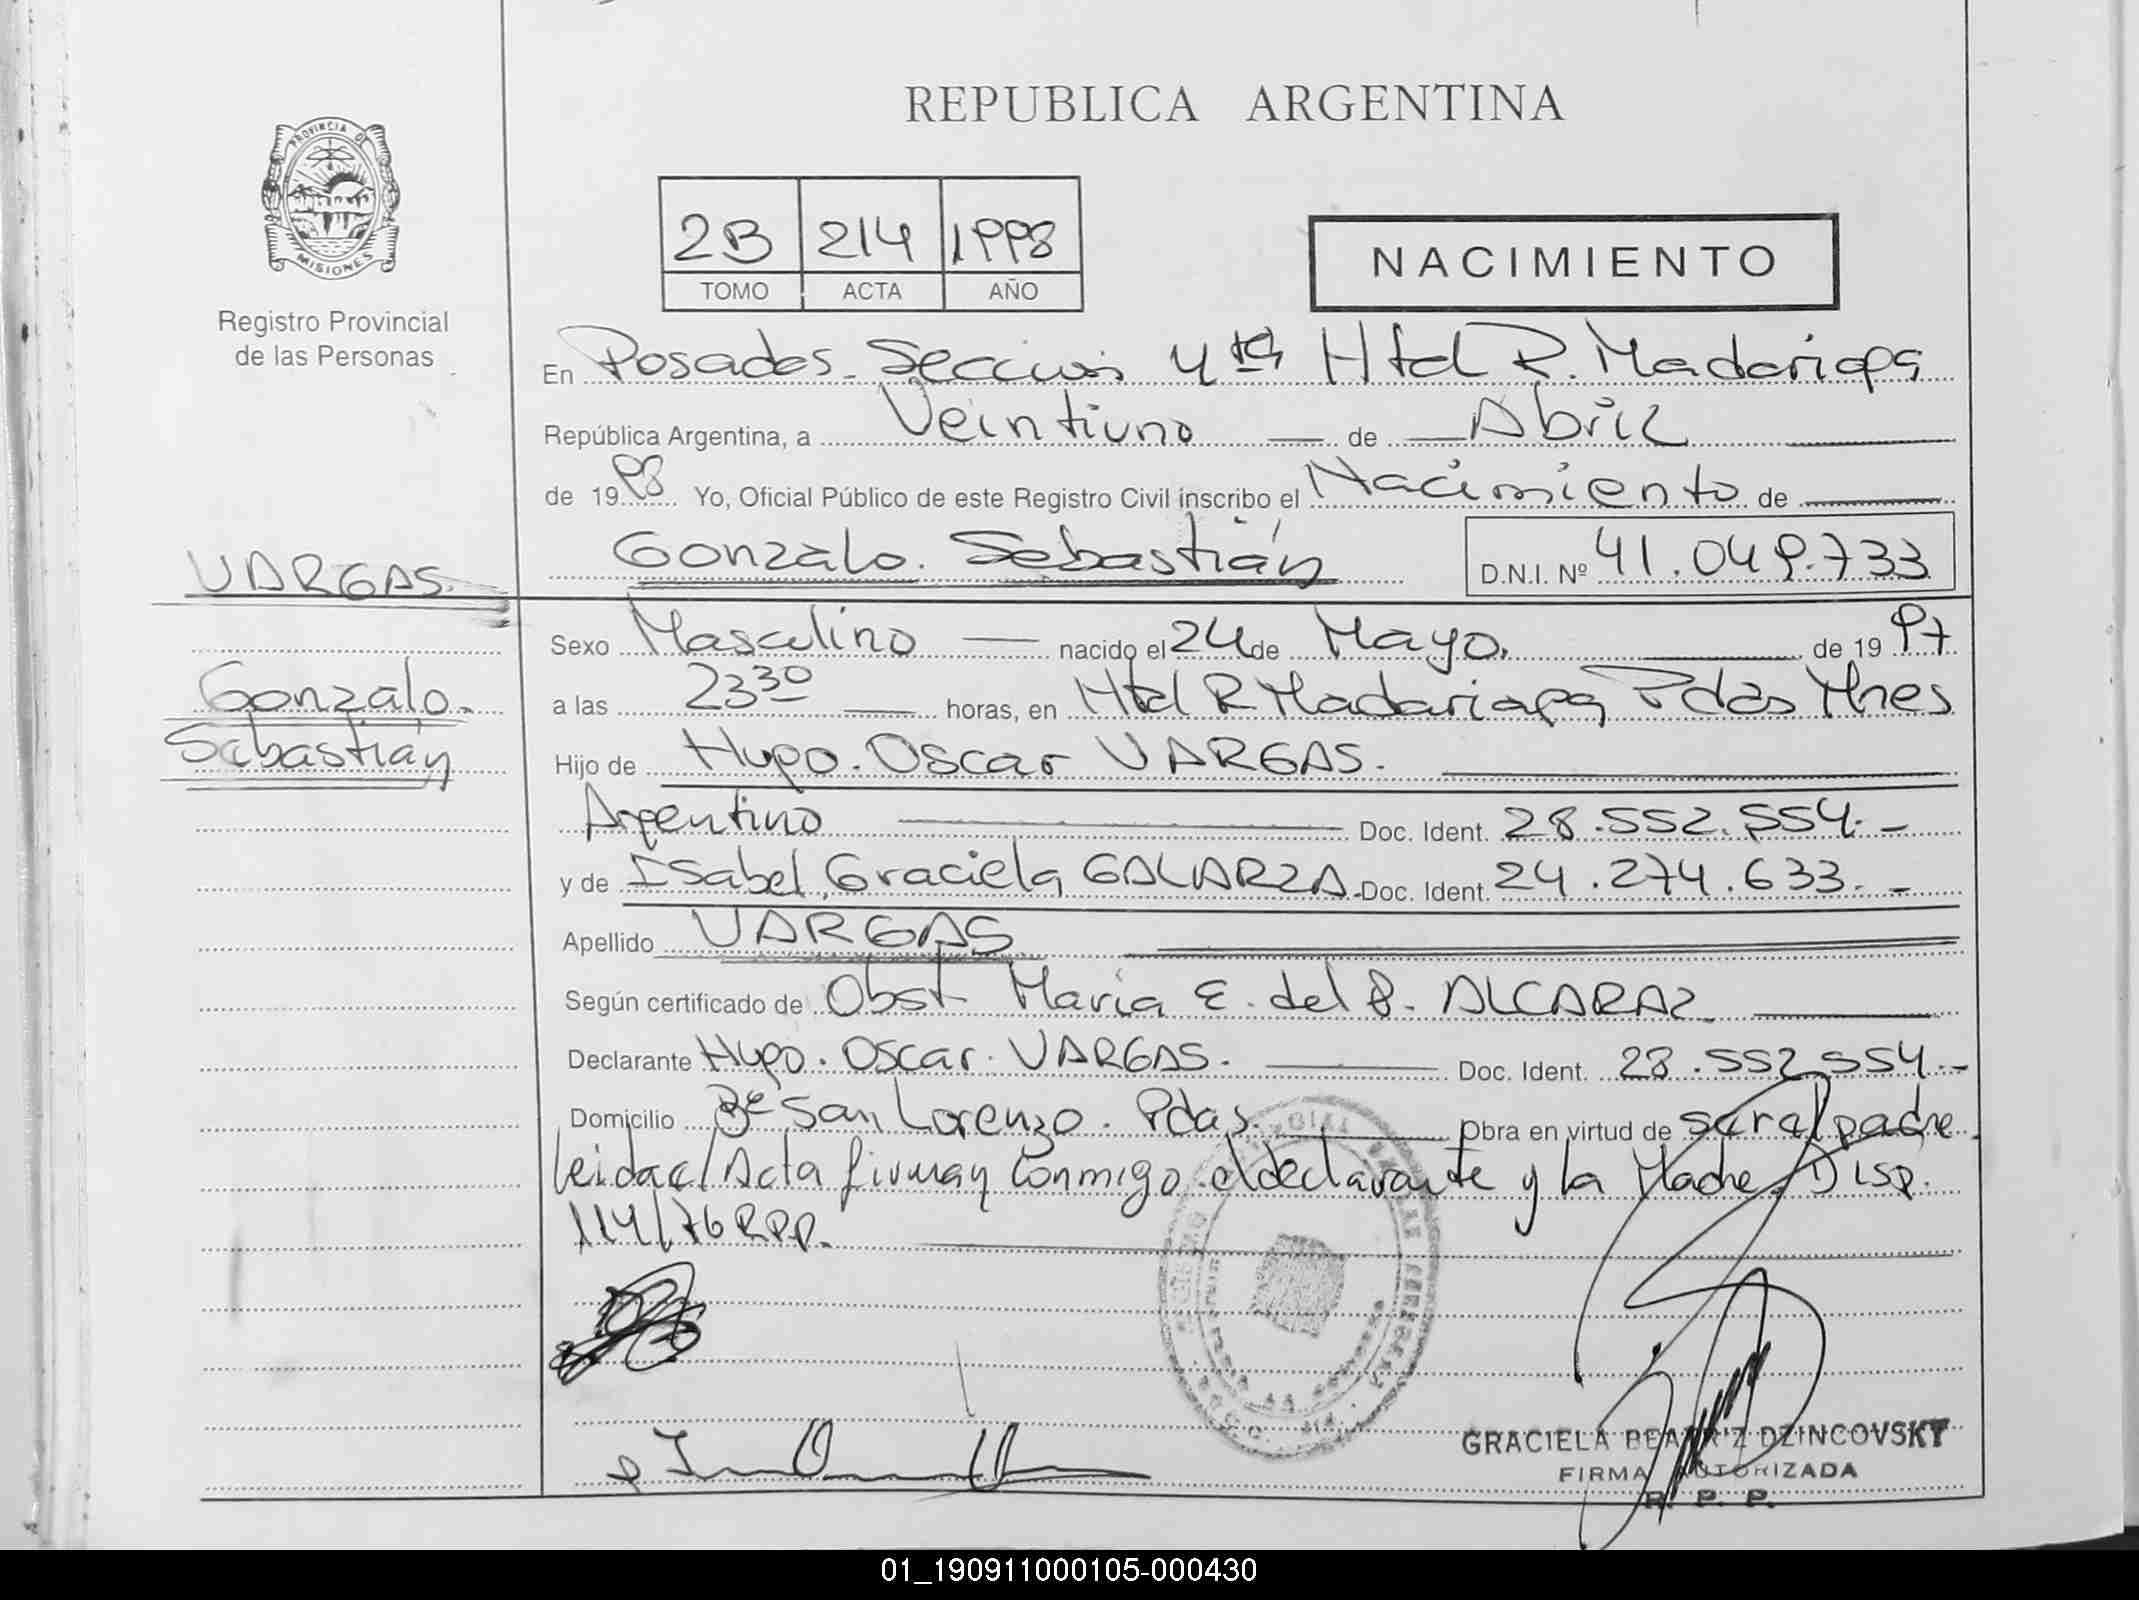 REPUBLICA ARGENTINA
PROVINCIA D
MISIONES
Registro Provincial
de las Personas
2B 214 1998
TOMO ACTA AÑO
NACIMIENTO
En Posadas. Sección 4ta Htal R. Madariaga
República Argentina, a Veintiuno de Abril
de 1998 Yo, Oficial Público de este Registro Civil inscribo el Nacimiento de
Gonzalo. Sebastián D.N.I. Nº 41.049.733
VARGAS.
Gonzalo.
Sebastián
Sexo Masculino nacido el 24 de Mayo. de 1997
a las 23 30 horas, en Htal R Madariaga Pdas Mnes
Hijo de Hugo. Oscar VARGAS.
Argentino Doc. Ident. 28.552.554.-
y de Isabel Graciela GALARZA. Doc. Ident. 24.274.633.-
Apellido VARGAS
Según certificado de Obst María E. del ALCARAZ
Declarante Hugo. Oscar. VARGAS. Doc. Ident. 28.552.554.-
Domicilio Bº San Lorenzo. Pdas. Obra en virtud de ser el padre
leida el Acta firman conmigo el declarante y la Madre. Disp.
114/76 RPP.
GRACIELA BEATRIZ DZINCOVSKY
FIRMA AUTORIZADA
R. P. P.
01_190911000105-000430